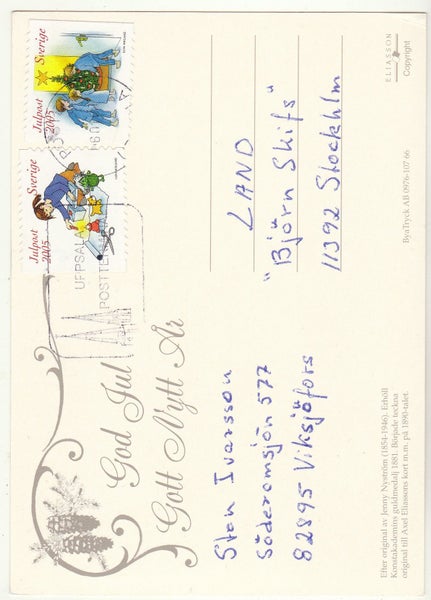 Julpost
2005
Sverige
Julpost
2005
Sverige
UPPSALA
POSTTER
God Jul
Gott Nytt År
Sten Ivarsson
Söderomsjön 577
82895 Viksjöfors
LAND
"Björn Skifs"
11392 Stockhlm
Efter original av Jenny Nyström (1854-1946). Erhöll
Konstakademins guldmedalj 1881. Började teckna
original till Axel Eliassons kort m.m. på 1890-talet.
ByaTryck AB 0976-107 66
ELIASSON
Copyright